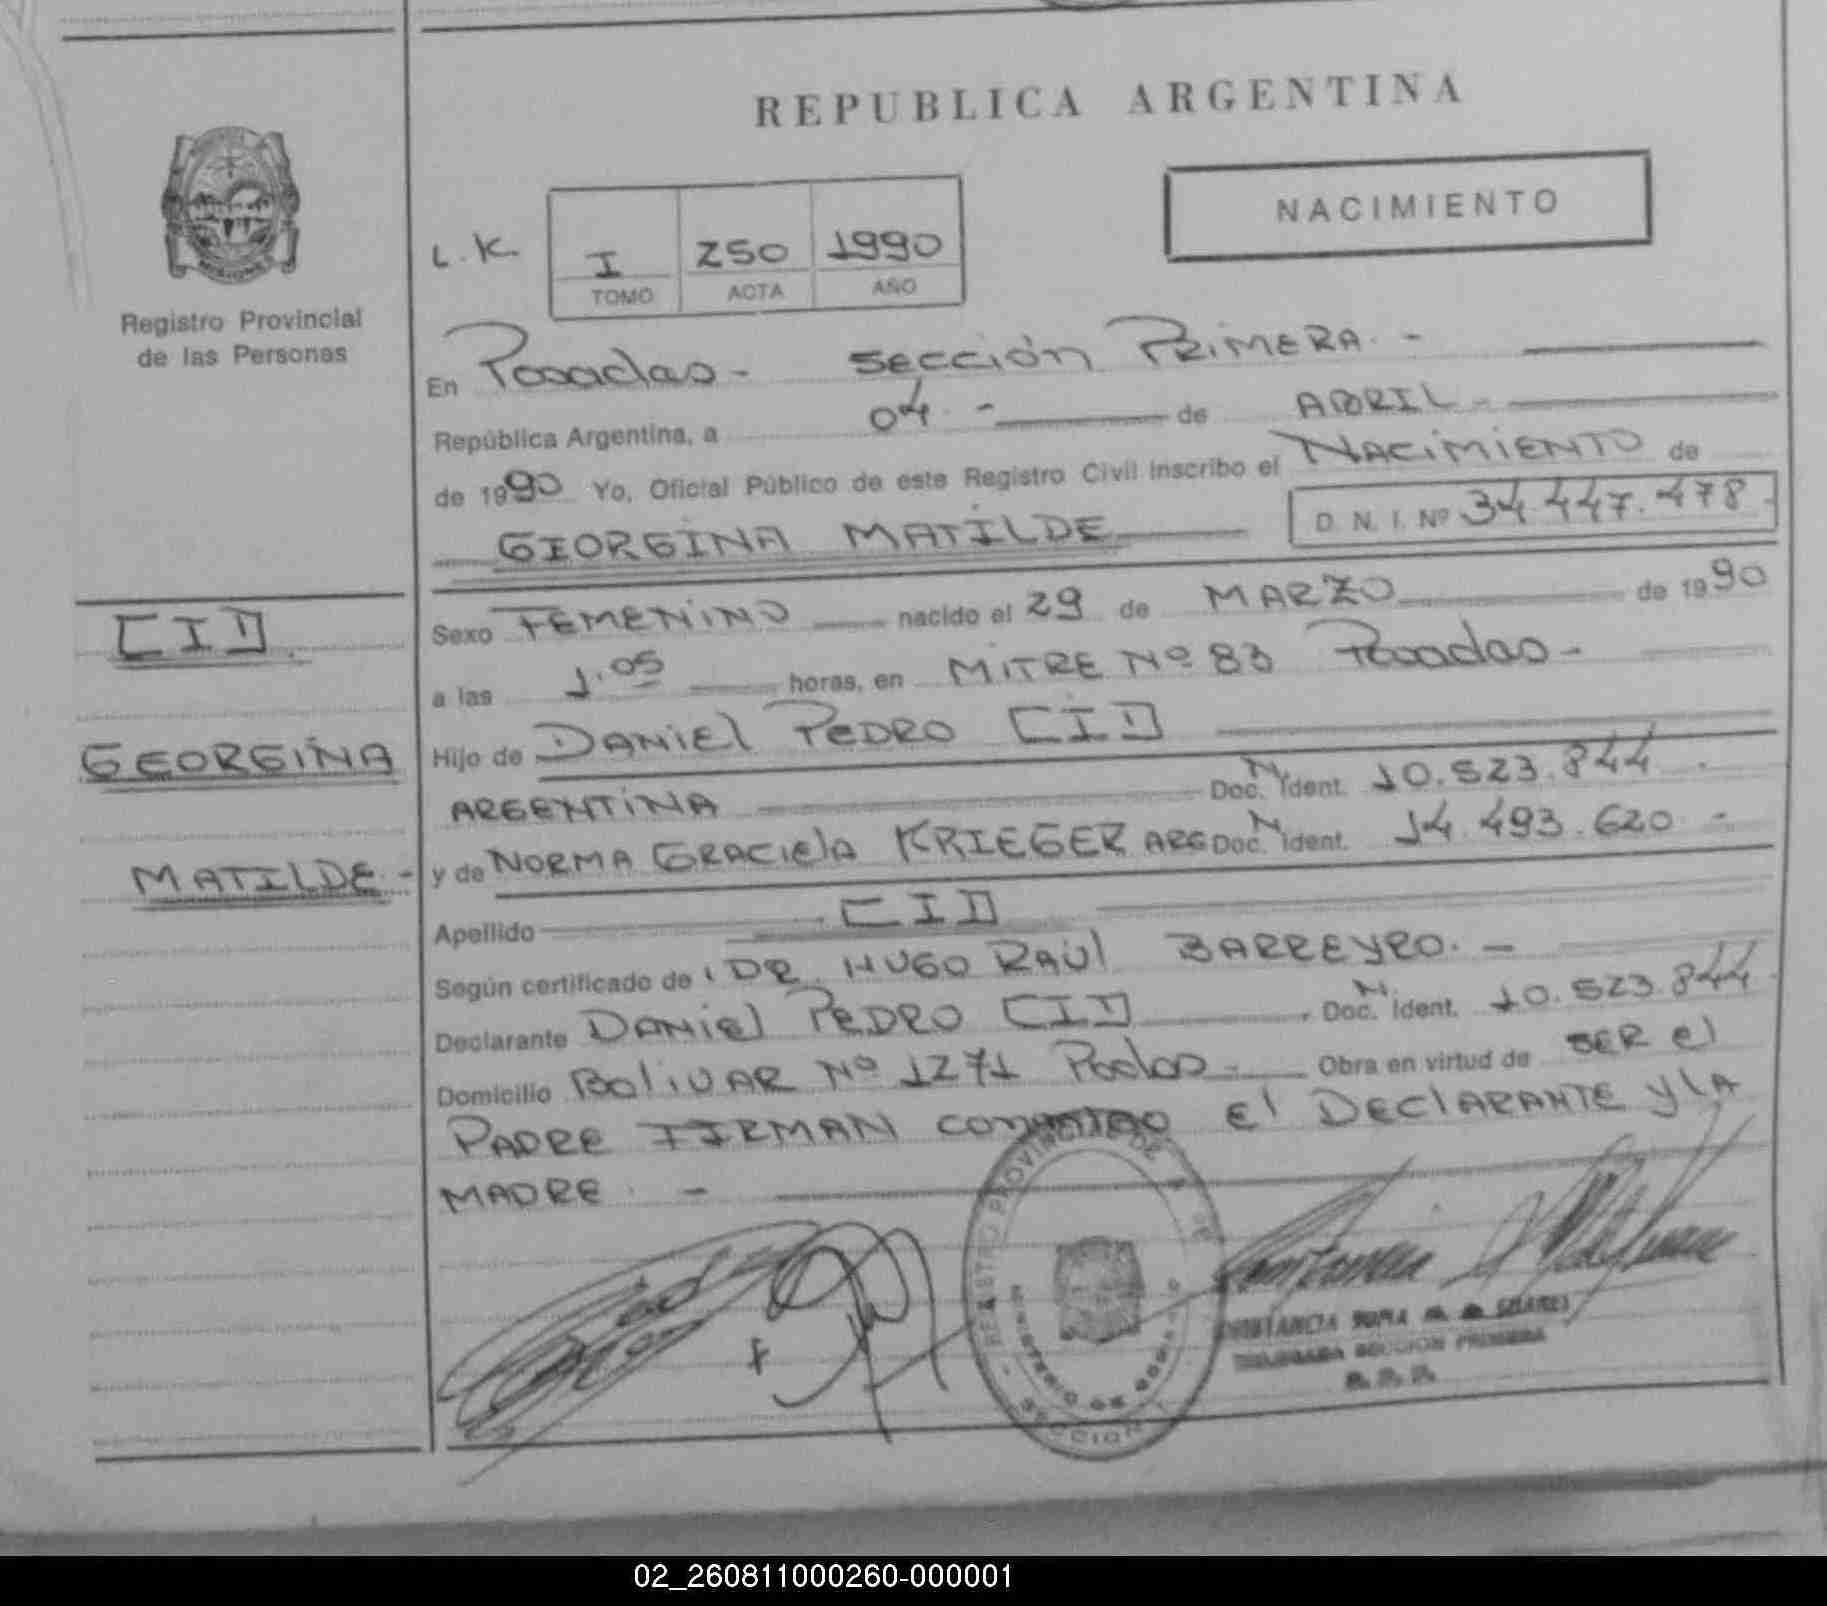 REPUBLICA ARGENTINA
NACIMIENTO
L.K.
I 250 1990
TOMO ACTA AÑO
Registro Provincial
de las Personas
En Posadas - Sección PRIMERA. -
República Argentina, a 04. - de ABRIL -
de 1990 Yo, Oficial Público de este Registro Civil inscribo el NACIMIENTO de
GIORGINA MATILDE D. N. I. Nº 34.447.478.
CID.
Sexo FEMENINO nacido el 29 de MARZO de 1990
a las 1.05 horas, en MITRE Nº 83 Posadas -
GEORGINA
Hijo de DANIEL PEDRO CID
ARGENTINA Doc. N. Ident. 10.523.844.
MATILDE. -
y de NORMA GRACIELA KRIEGER ARG Doc. N Ident. 14.493.620 -
Apellido CID
Según certificado de DR. HUGO RAUL BARREYRO. -
Declarante DANIEL PEDRO CID Doc. N. Ident. 10.523.844
Domicilio BOLIVAR Nº 1271 Psdas - Obra en virtud de SER el
PADRE FIRMAN conmigo El DECLARANTE y LA
MADRE. -
REGISTRO PROVINCIAL DE
MINISTERIO DE GOBIERNO
SECCION 1
SECCION PRIMERA
02_260811000260-000001